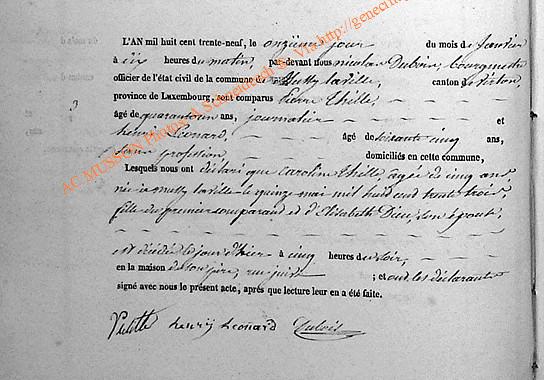 L'AN mil huit cent trente-neuf, le onzième jour du mois de Janvier
à dix heures du matin, par-devant Nous Nicolas Dubois, bourgmestre
officier de l'état civil de la commune de Mussy la ville, canton de Virton,
province de Luxembourg, sont comparus Pierre Thille,
3
âgé de quarante un ans, journalier et
henri Léonard, âgé de soixante cinq ans,
sans profession, domiciliés en cette commune,
Lesquels nous ont déclaré que Caroline Thille, agée de cinq ans,
née à Mussy la ville le quinze mai mil huit cent trente trois,
fille du premier comparant et d'Elisabeth Dieu, son épouse,
est décédée le jour d'hier à cinq heures du soir,
en la maison de son père, rue ; et ont les déclarants
signé avec nous le présent acte, après que lecture leur en a été faite.
henrÿ Leonard Dubois
AC MUSSON Photos A. Schmidburg & Via http://genecm